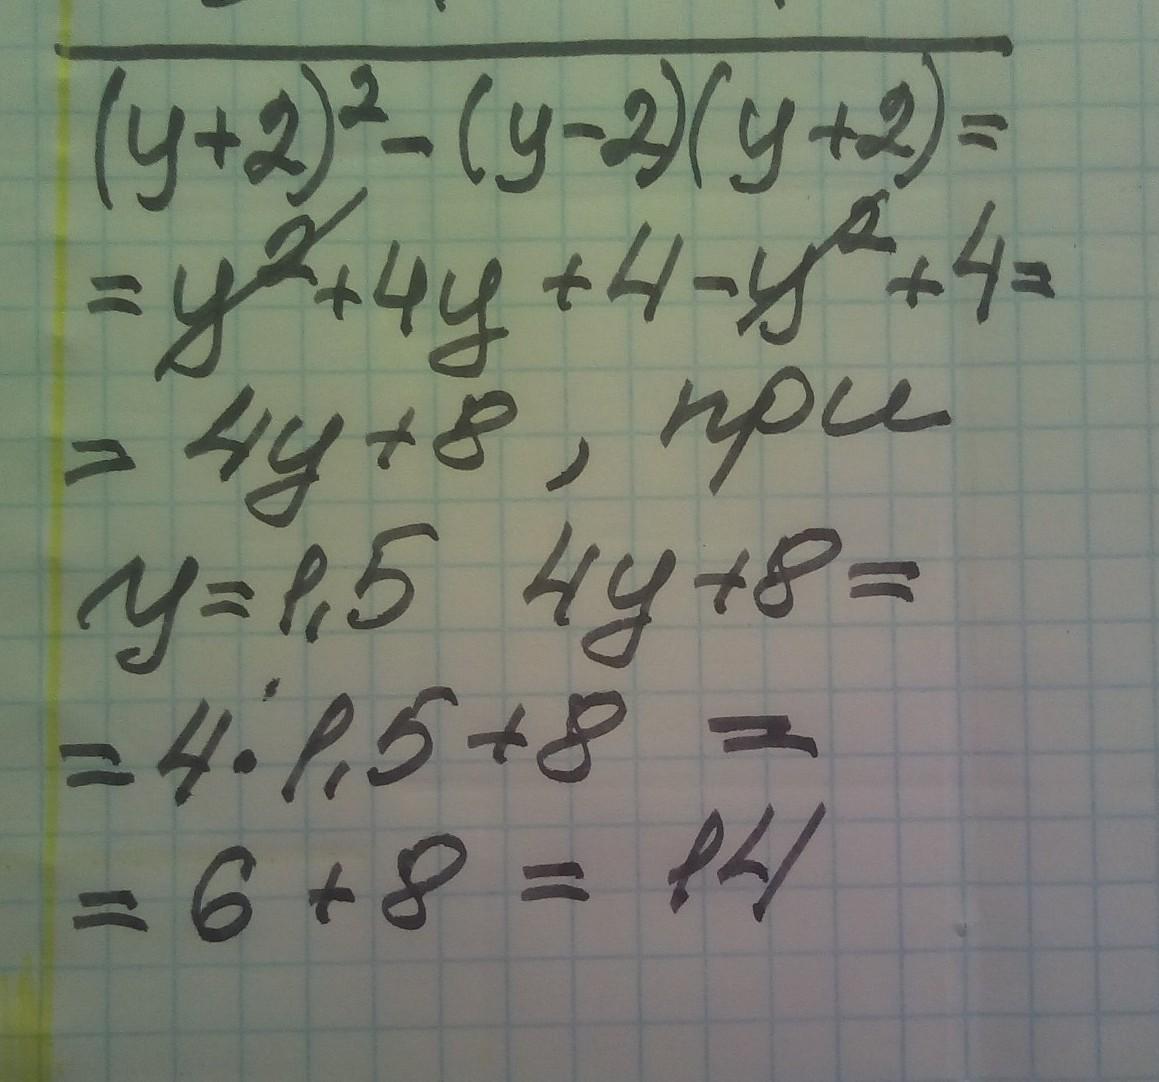 (y+2)²-(y-2)(y+2)=
=y²+4y+4-y²+4=
=4y+8, при
y=1,5 4y+8=
=4·1,5+8 =
=6+8=14